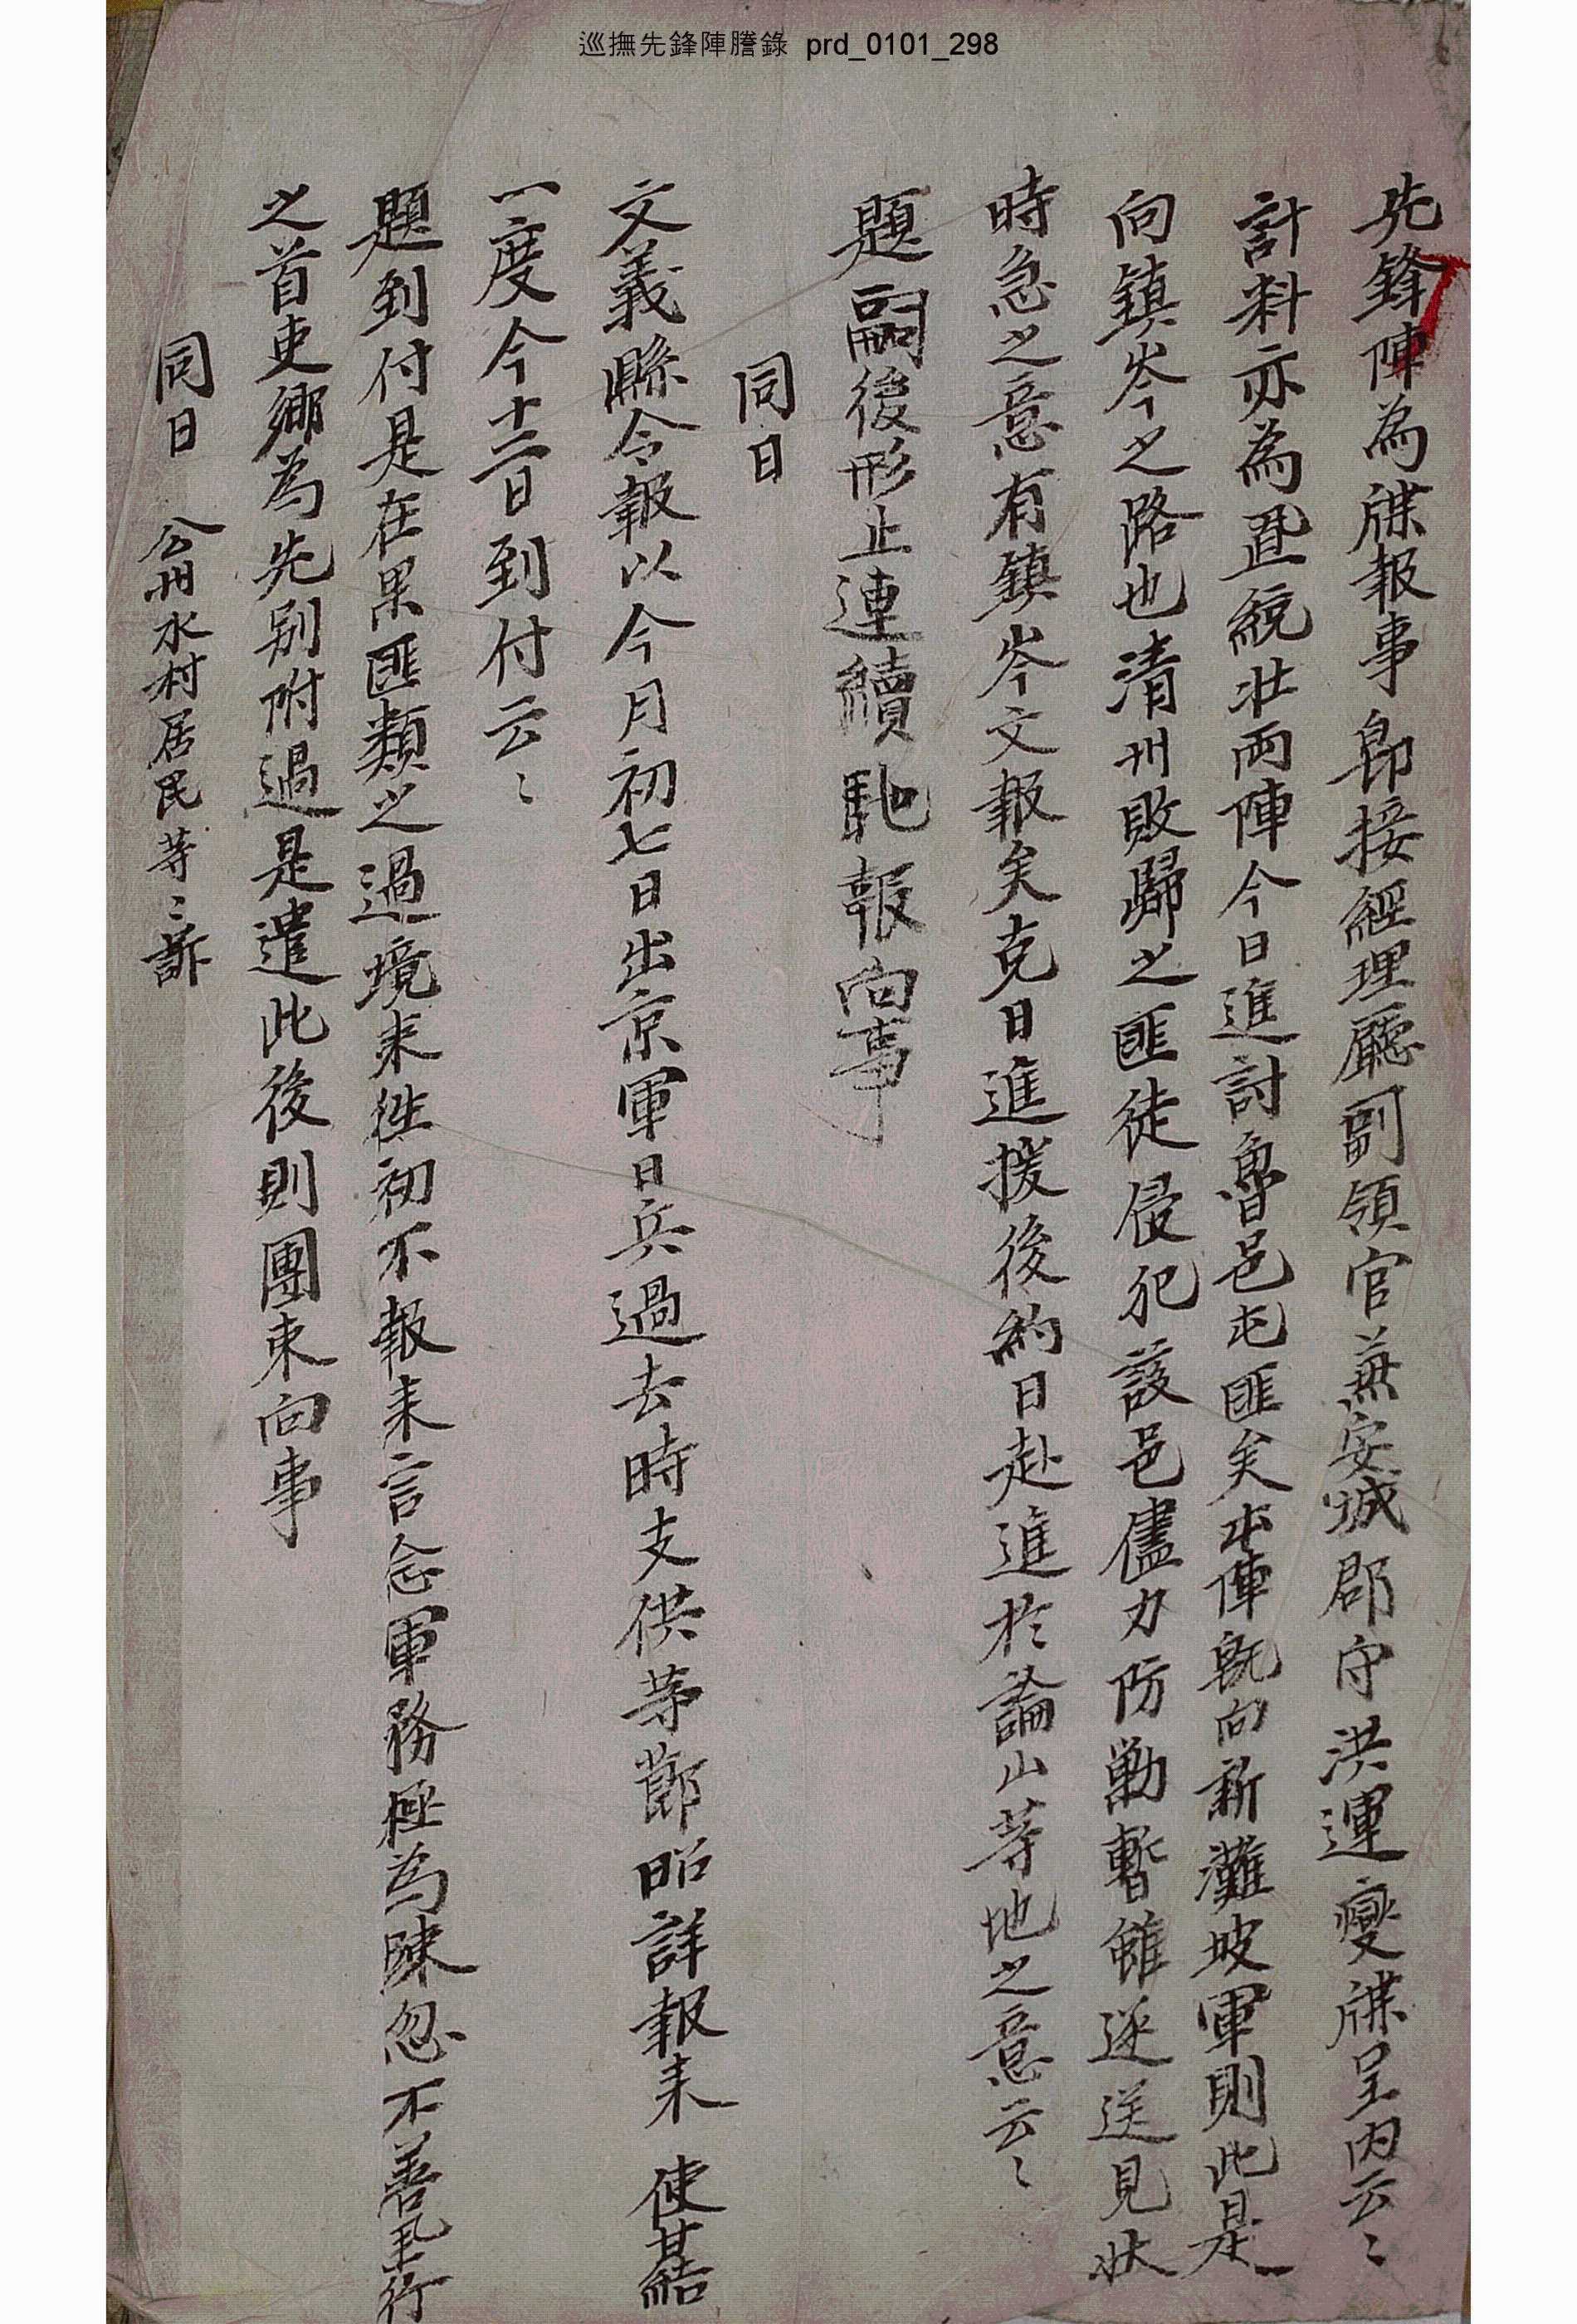 巡撫先鋒陣謄錄 prd_0101_298
先鋒陣為牒報事卽接經理廳副領官兼安城郡守洪運燮牒呈內云〻
計料亦為曁統壯兩陣今日進討魯邑屯匪矣本陣旣向新灘坡軍則此是
向鎮岑之路也清州敗歸之匪徒侵犯該邑儘力防勦暫雖逆送見狀
時急之意有鎮岑文報矣克日進援後約日赴進於論山等地之意云〻
題嗣後形止連續馳報向事
同日
文義縣令報以今月初七日出京軍日兵過去時支供等節昭詳報来使甘結
一度今十二日到付云〻
題到付是在果匪類之過境来徃初不報来言念軍務極為踈忽不善擧行
之首吏鄉為先別附過是遣此後則團束向事
同日 公州水村居民等〻訴